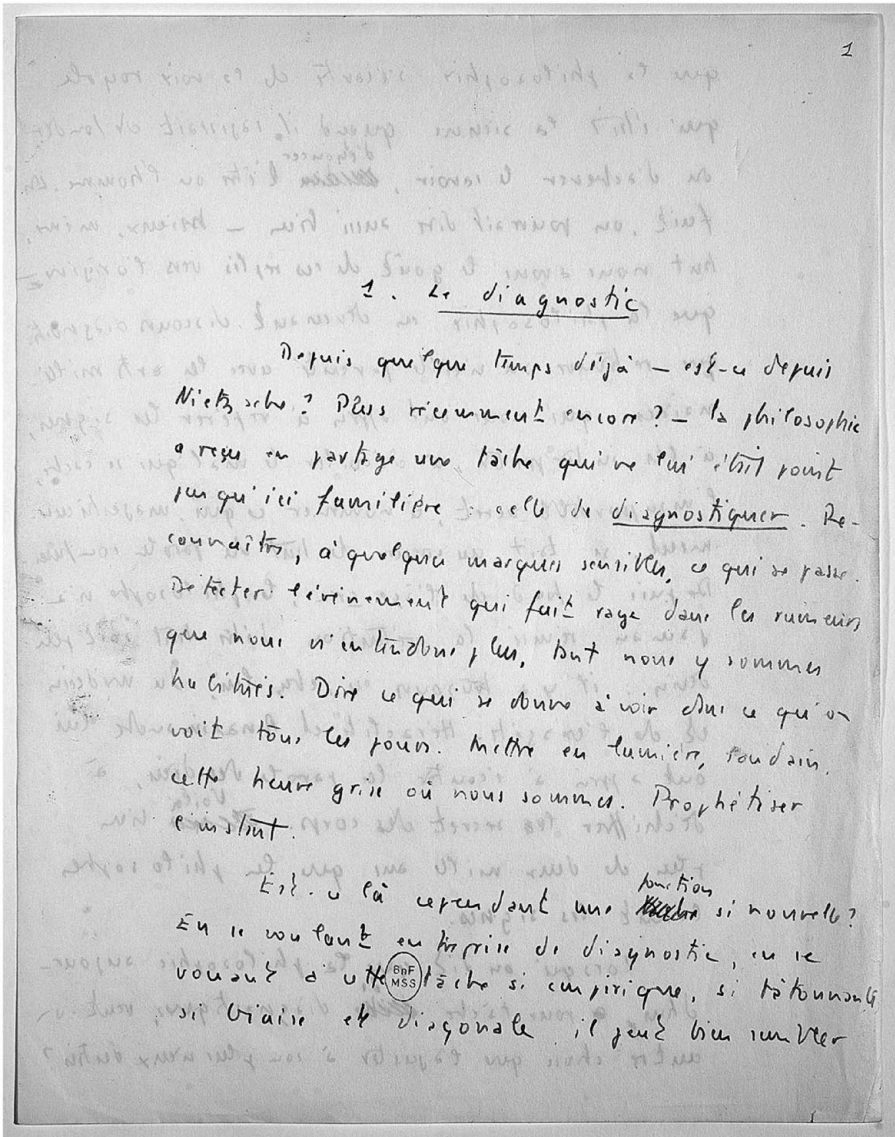 1
1. Le diagnostic
Depuis quelque temps déjà — est-ce depuis
Nietzsche ? Plus récemment encore ? — la philosophie
a reçu en partage une tâche qui ne lui était point
jusqu'ici familière : celle de diagnostiquer. Re-
connaître, à quelques marques sensibles, ce qui se passe.
Détecter l'événement qui fait rage dans les rumeurs
que nous n'entendons plus, tant nous y sommes
habitués. Dire ce qui se donne à voir dans ce qu'on
voit tous les jours. Mettre en lumière, soudain,
cette heure grise où nous sommes. Prophétiser
l'instant.
fonction
Est-ce là cependant une si nouvelle ?
En se voulant entreprise de diagnostic, en se
vouant à cette tâche si empirique, si tâtonnante,
si biaise et diagonale il peut bien sembler
BnF
MSS